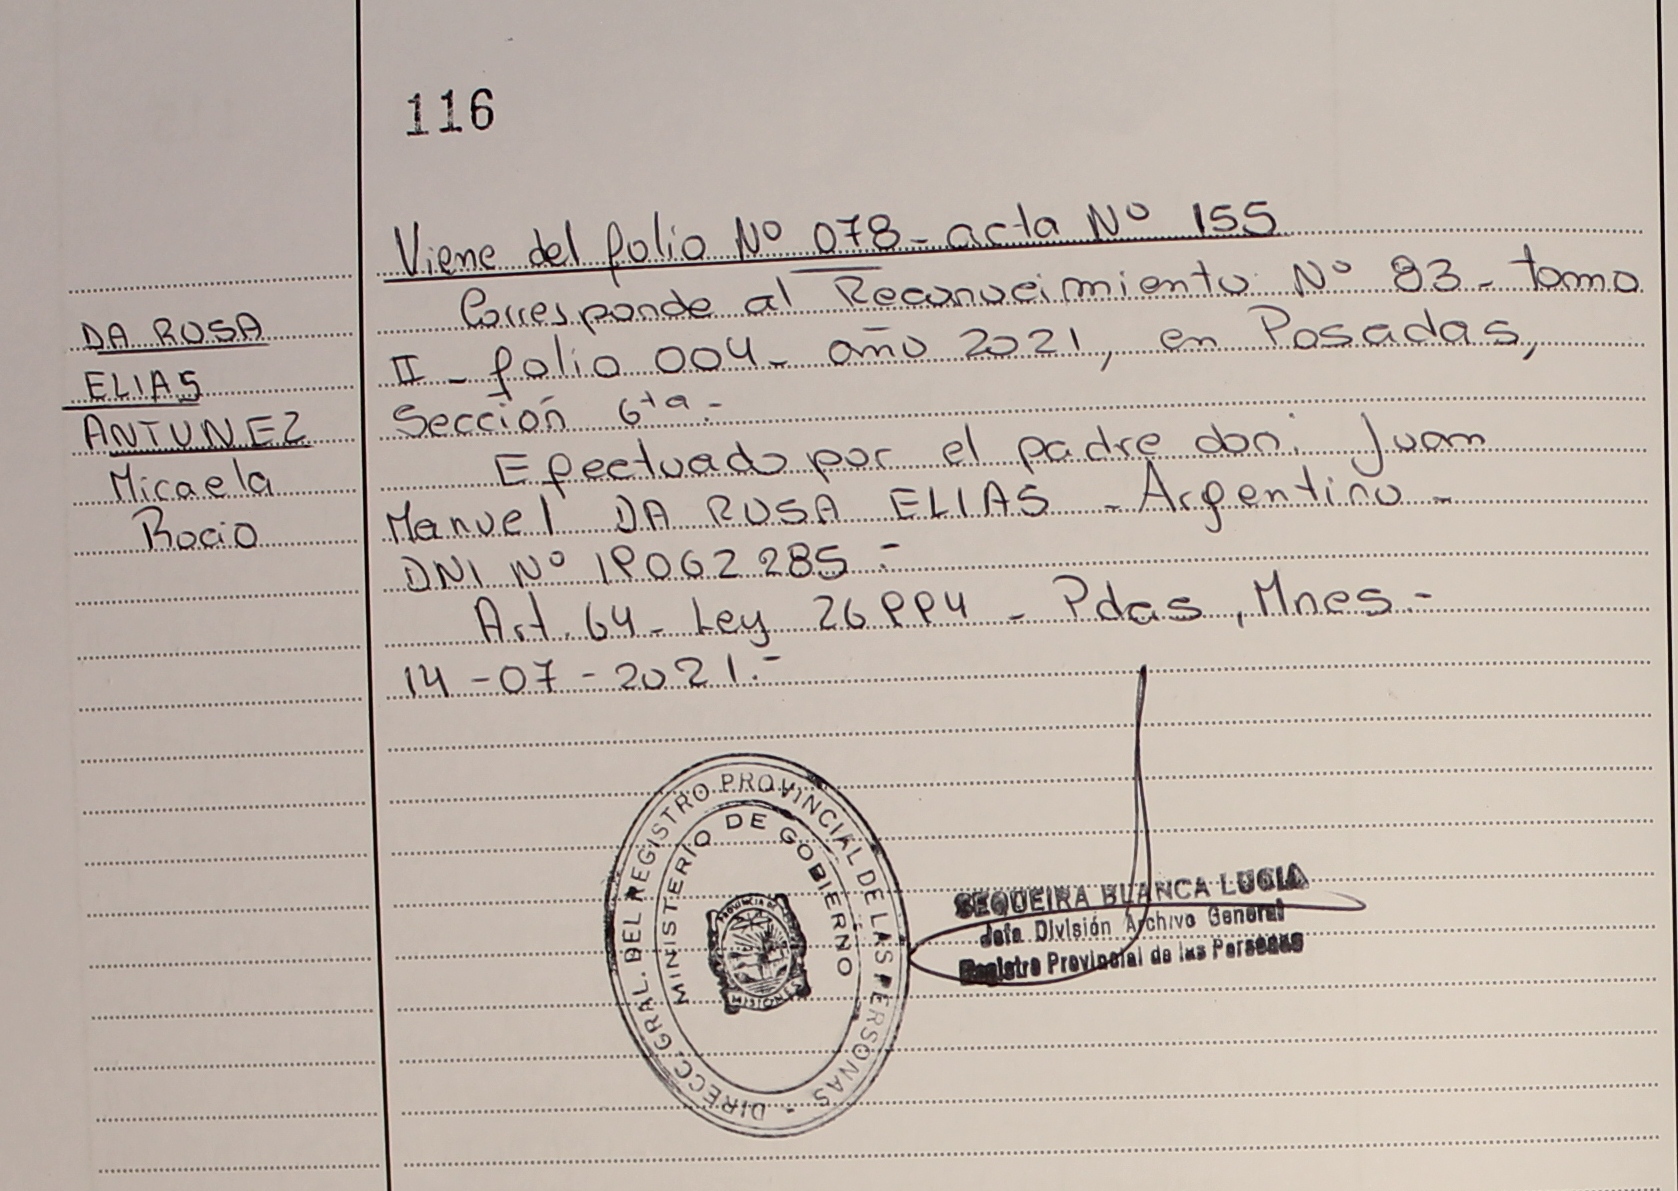 116
DA ROSA
ELIAS
ANTUNEZ
Micaela
Rocio
Viene del folio Nº 078 - acta Nº 155
Corresponde al Reconocimiento Nº 83 - tomo
II - folio 004 - año 2021, en Posadas,
Sección 6ta -
Efectuado por el padre don: Juan
Manuel DA ROSA ELIAS - Argentino -
DNI Nº 19062285 -
Art. 64 - Ley 26994 - Pdas, Mnes -
14-07-2021.-
DIRECC. GRAL. DEL REGISTRO PROVINCIAL DE LAS PERSONAS -
MINISTERIO DE GOBIERNO
PROVINCIA DE
MISIONES
SEQUEIRA BLANCA LUCIA
Jefa División Archivo General
Registro Provincial de las Personas